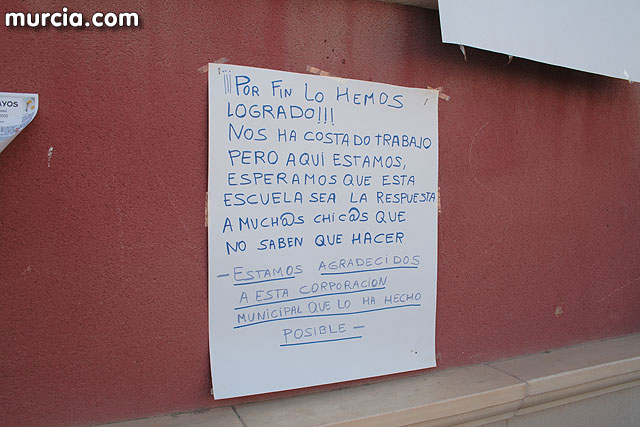 murcia.com
AYOS
¡¡¡POR FIN LO HEMOS
LOGRADO!!!
NOS HA COSTADO TRABAJO
PERO AQUÍ ESTAMOS,
ESPERAMOS QUE ESTA
ESCUELA SEA LA RESPUESTA
A MUCH@S CHIC@S QUE
NO SABEN QUE HACER
- ESTAMOS AGRADECIDOS
A ESTA CORPORACION
MUNICIPAL QUE LO HA HECHO
POSIBLE -